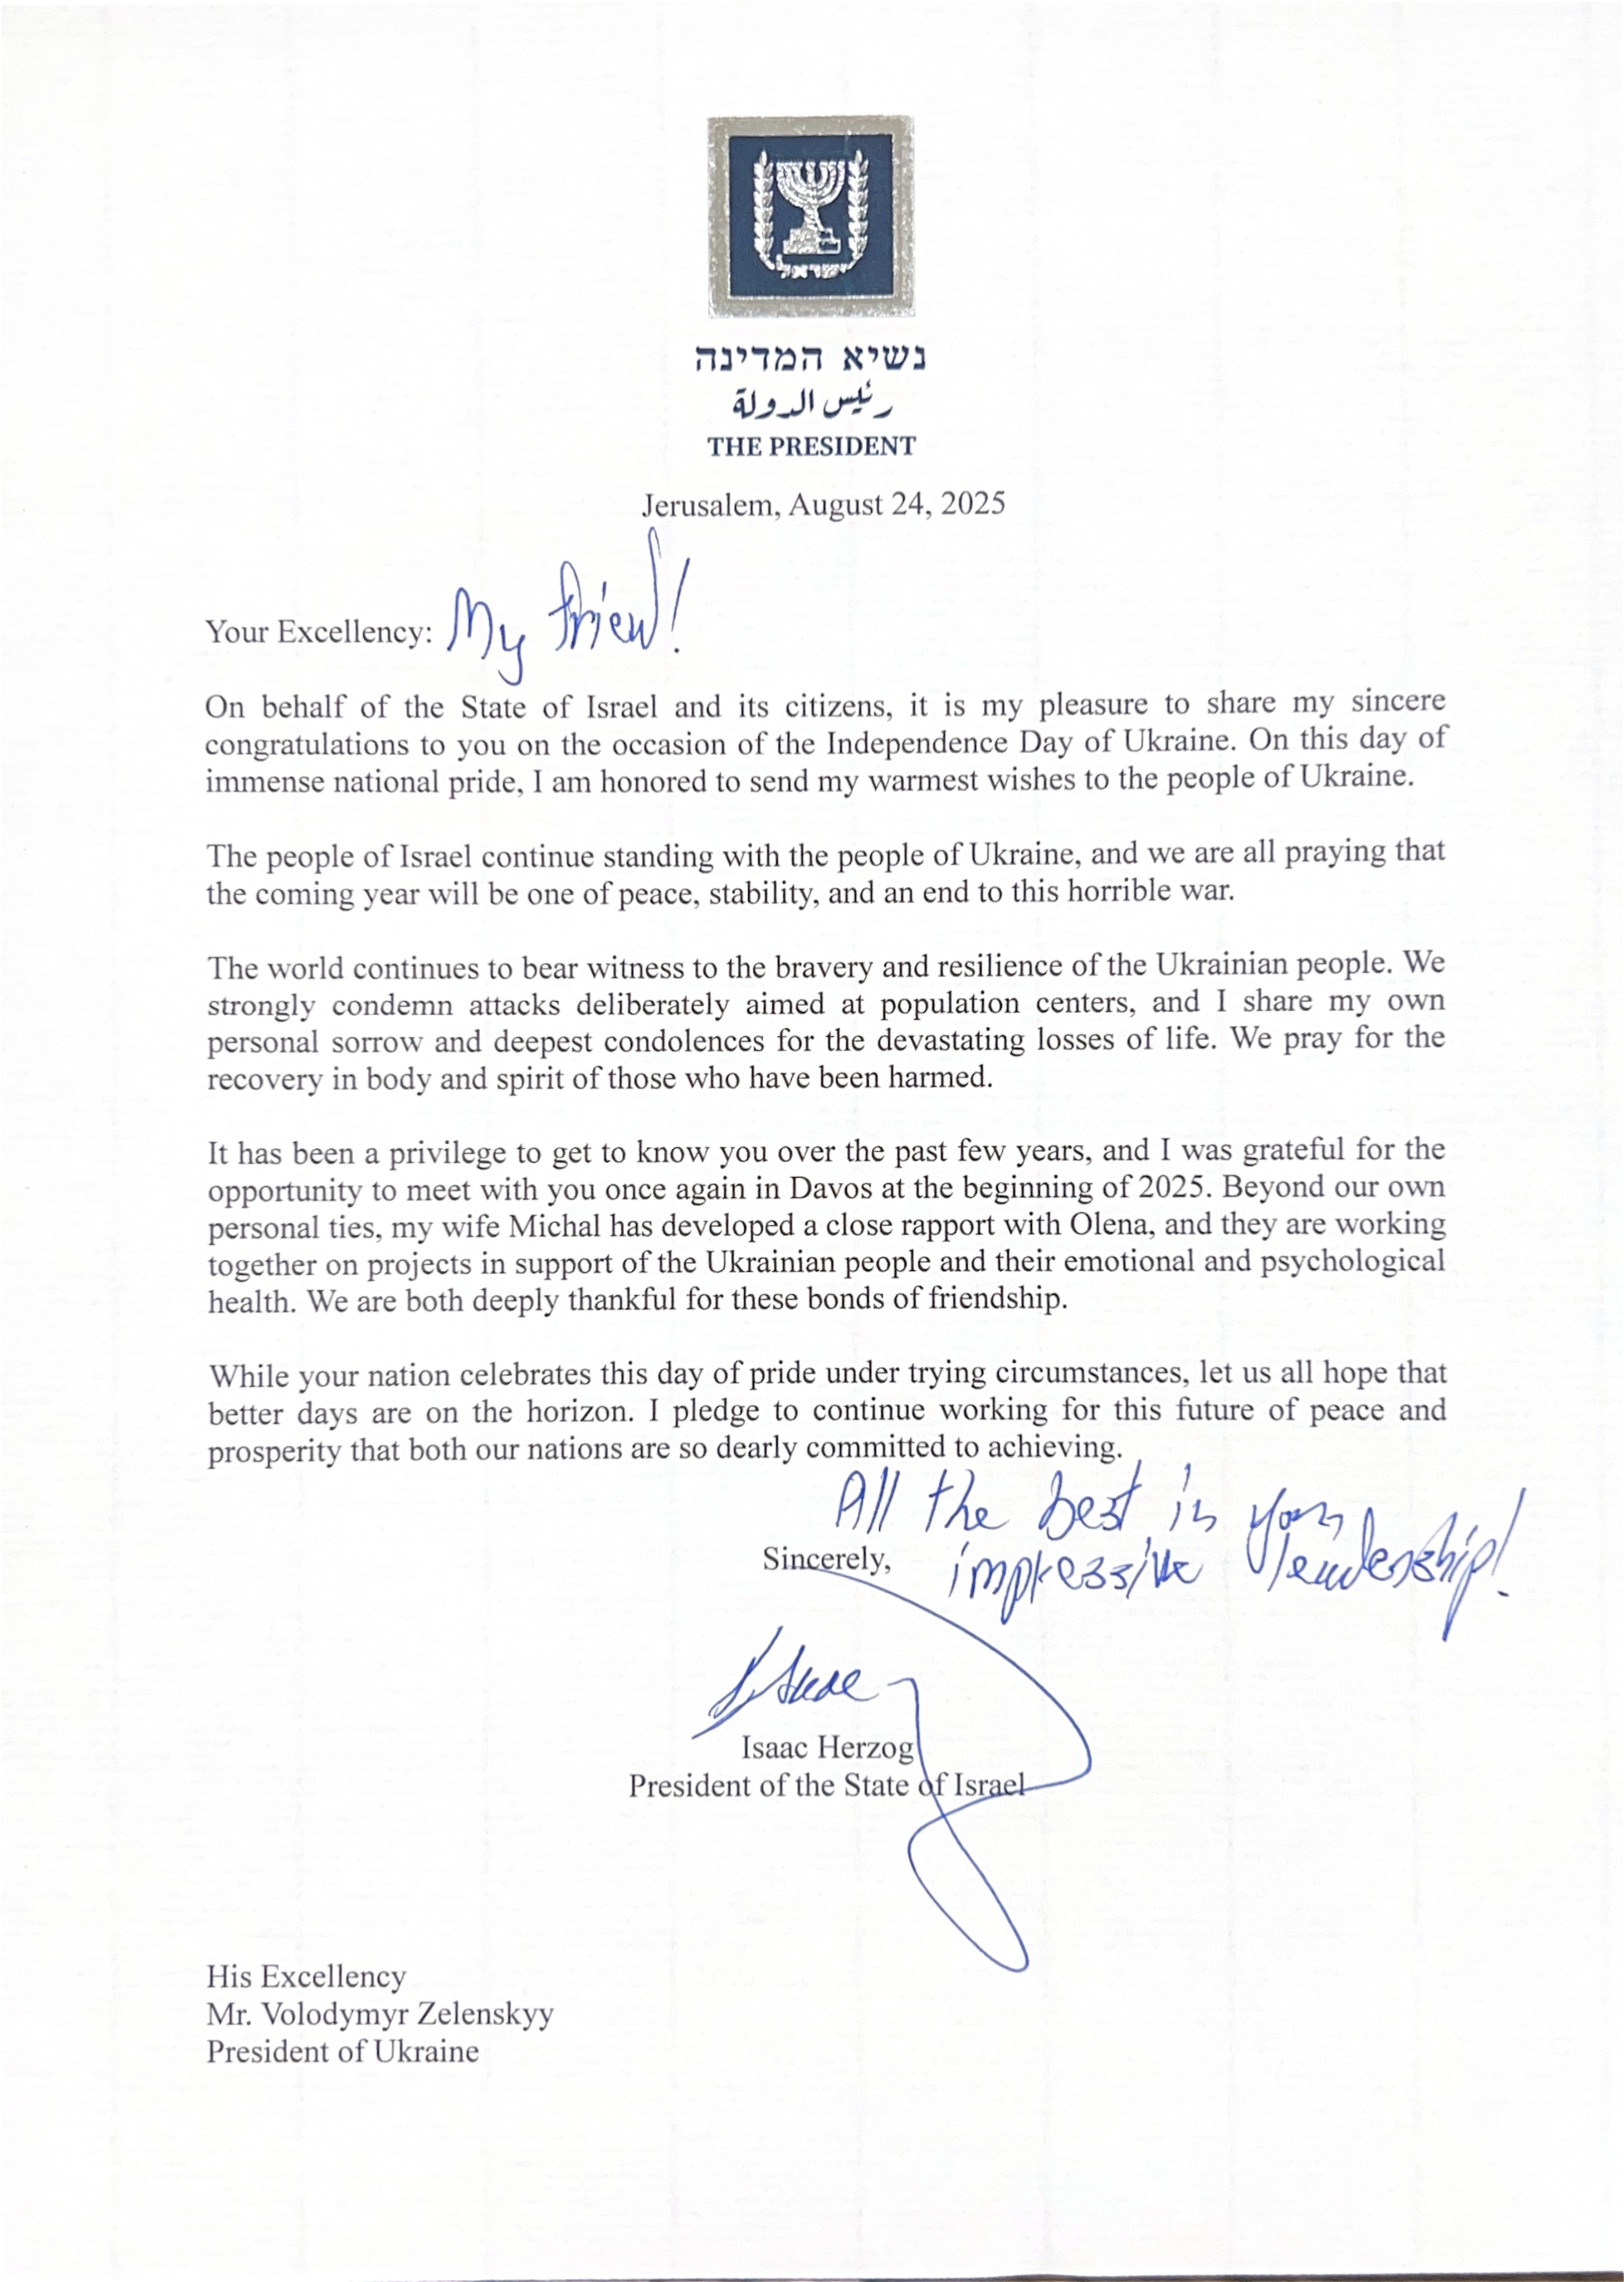 נשיא המדינה
رئيس الدولة
THE PRESIDENT
Jerusalem, August 24, 2025
Your Excellency: My friend!
On behalf of the State of Israel and its citizens, it is my pleasure to share my sincere
congratulations to you on the occasion of the Independence Day of Ukraine. On this day of
immense national pride, I am honored to send my warmest wishes to the people of Ukraine.
The people of Israel continue standing with the people of Ukraine, and we are all praying that
the coming year will be one of peace, stability, and an end to this horrible war.
The world continues to bear witness to the bravery and resilience of the Ukrainian people. We
strongly condemn attacks deliberately aimed at population centers, and I share my own
personal sorrow and deepest condolences for the devastating losses of life. We pray for the
recovery in body and spirit of those who have been harmed.
It has been a privilege to get to know you over the past few years, and I was grateful for the
opportunity to meet with you once again in Davos at the beginning of 2025. Beyond our own
personal ties, my wife Michal has developed a close rapport with Olena, and they are working
together on projects in support of the Ukrainian people and their emotional and psychological
health. We are both deeply thankful for these bonds of friendship.
While your nation celebrates this day of pride under trying circumstances, let us all hope that
better days are on the horizon. I pledge to continue working for this future of peace and
prosperity that both our nations are so dearly committed to achieving.
All the best in your
impressive leadership!
Sincerely,
Isaac
Isaac Herzog
President of the State of Israel
His Excellency
Mr. Volodymyr Zelenskyy
President of Ukraine